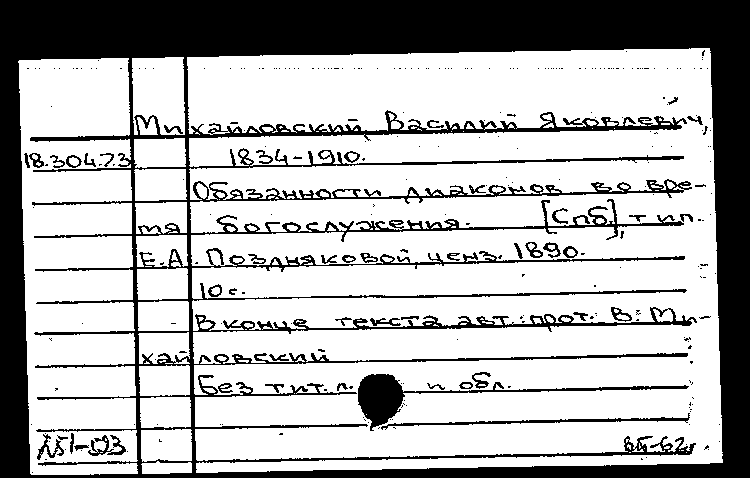 Михайловский, Василий Яковлевич,
18.304.7.3 1834-1910.
Обязанности диаконов во вре-
мя богослужения. [Спб.], тип.
Е.А. Поздняковой, ценз. 1890.
10 с.
В конце текста авт.: прот. В. Ми-
хайловский
Без тит. л. и обл.